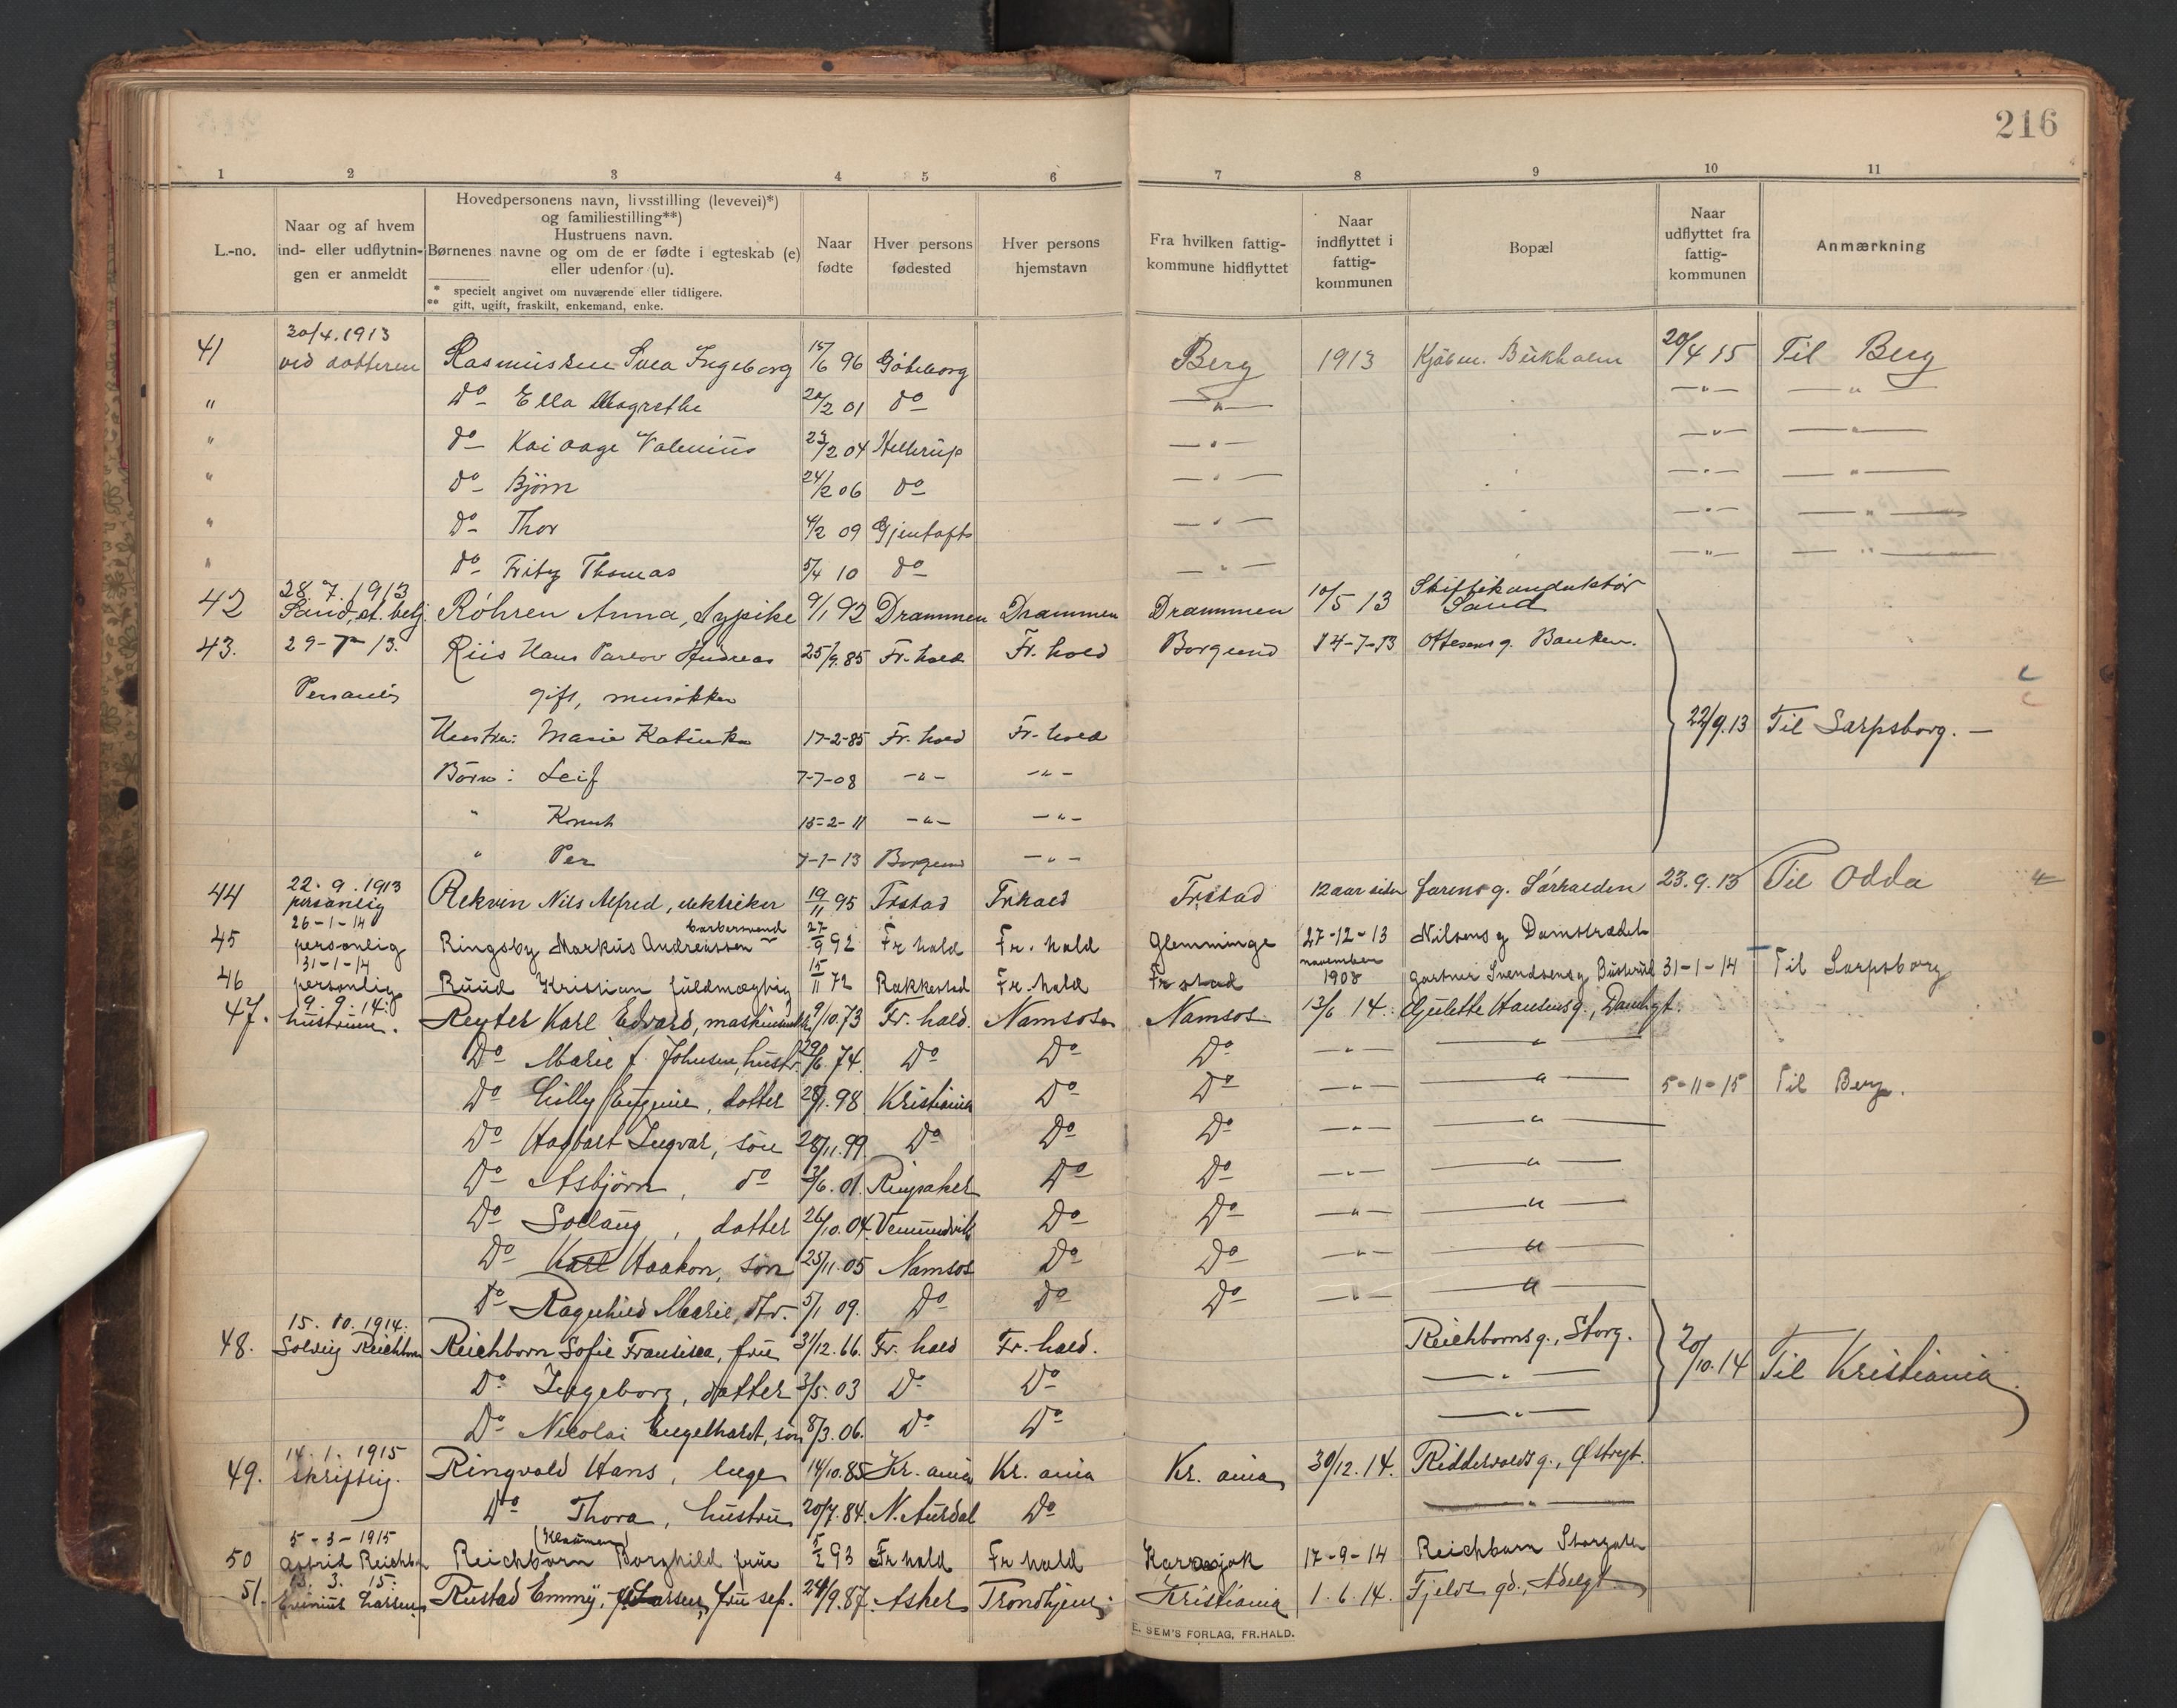 216
1 2 3 4 5 6 7 8 9 10 11
L.-no.
Naar og af hvem
ind- eller udflytnin-
gen er anmeldt
Hovedpersonens navn, livsstilling (levevei)*)
og familiestilling**)
Hustruens navn.
Børnenes navne og om de er fødte i egteskab (e)
eller udenfor (u).
* specielt angivet om nuværende eller tidligere.
** gift, ugift, fraskilt, enkemand, enke.
Naar
fødte
Hver persons
fødested
Hver persons
hjemstavn
Fra hvilken fattig-
kommune hidflyttet
Naar
indflyttet i
fattig-
kommunen
Bopæl
Naar
udflyttet fra
fattig-
kommunen
Anmærkning
30/4.1913
41 ved datteren Rasmussen Svea Ingeborg 15/6 96 Göteborg Berg 1913 Kjøbm. Bükholm 20/4 15 Til Berg
" Do Ella Magrethe 20/2 01 do — " — — " — — " —
" do Kai Aage Valenius 23/2 04 Hellerup — " — — " — — " —
" Do Bjørn 24/2 06 do — " — — " — — " —
" Do Thor 4/2 09 Gjentofte — " — — " — — " —
" Do Fritz Thomas 5/4 10 do — " — — " — — " —
28.7.1913
42 Sand, st. betj. Röhren Anna, sypike 9/1 92 Drammen Drammen Drammen 10/5 13 Skiftekonduktør Sand
43. 29-7-13. Riis Hans Parlov Andreas 25/9.85 Fr. hald Fr. hald Borgund 14-7-13 Ottesens g. Banken.
Personlig gift, musikker
Hustru: Marie Katinka 17-2-85 Fr. hald Fr. hald 22/9.13 Til Sarpsborg. —
Børn: Leif 7-7-08 — " — — " —
" Knut 15-2-11 — " — — " —
" Per 7-1-13 Borgund — " —
22.9.1913
44 personlig Rekvin Nils Alfred, elektriker 19/11 95 Frstad Frhald Frstad 12 aar siden Larens g. Sørhalden 23.9.13 Til Odda
26-1-14 barbersvend
45 personlig Ringsby Markus Andreassen 27/9 92 Fr hald Fr. hald Glemminge 27-12-13 Nilsens g Damstrædet
31-1-14 november
46 personlig Ruud Kristian fuldmægtig 15/11 72 Rakkestad Fr. hald Fr stad 1908 gartner Svendsens g Busterud 31-1-14 Til Sarpsborg
9.9.14.
47. hustruen. Reyter Karl Edvard, 9/10.73 Fr. hald. Namsos Namsos 13/6 14. Gulette Hansens g., Damhgt.
Do Marie f. Johnsen, hustr. 29/6. 74. Do Do Do — " — — " —
Do Lilly Eugenie, datter 28/1.98 Kristiania Do Do — " — — " — 5-11-15 Til Berg.
Do Hagbart Ingvar, søn 28/11.99. Do Do Do — " — — " —
Do Asbjørn, do 3/6. 01. Ringsaker Do Do — " — — " —
Do Sollaug, datter 26/10.04. Vemundvik Do Do — " — — " —
Do Karl Haakon, søn 25/11.05 Namsos Do Do — " — — " —
Do Ragnhild Marie, dtr. 5/1 09. Do Do Do — " — — " —
15.10.1914.
48. Solveig Reichborn Reichborn Sofie Fransisca, frue 31/12.66. Fr. hald Fr. hald. Reichborns g., Storg. 20/10.14 Til Kristiania.
Do Ingeborg, datter 3/5.03 Do Do — " —
Do Nicolai Engelhardt, søn 8/3.06. Do Do — " —
14.1.1915
49. skriftlig. Ringvold Hans, læge 14/10.85 Kr. ania Kr. ania Kr. ania 30/12.14. Riddervolds g., Østregt.
Do Thora, hustru 20/7.84. N. Aurdal Do — " —
5-3-1915 (Klaumen)
50 Astrid Reichborn Reichborn Borghild frue 5/2 93 Fr hald Fr hald Karasjok 17-9-14 Reichborn Storgaten
13. 3. 15.
51. Larsen Rustad Emmy, f. Larsen, frue sep. 24/9.87. Asker Trondhjem. Kristiania 1.6.14. Fjelds gd., Adelgt.
E. SEM'S FORLAG, FR.HALD.